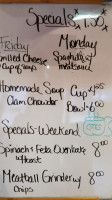 Specials
Friday Monday
Grilled Cheese Spaghetti w/
Cup of Soup meatsauce
Homemade Soup Cup
Clam Chowder Bowl
Specials-Weekend
Spinach & Feta Omelette 8.00
w/toast
Meatball Grinder w/ 8.00
Chips